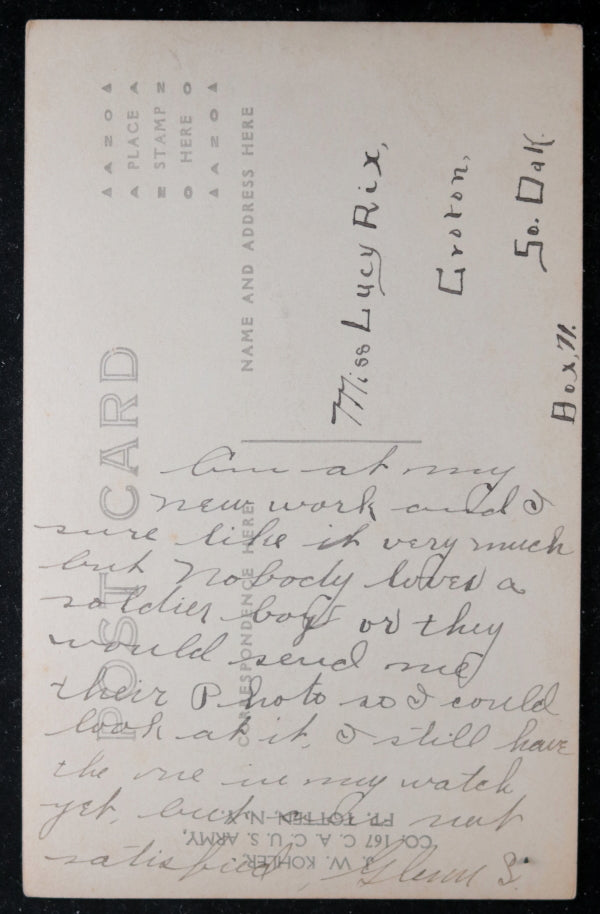 POST CARD
AZO
PLACE
STAMP
HERE
AZO
NAME AND ADDRESS HERE
CORRESPONDENCE HERE
Miss Lucy Rix,
Groton,
So. Dak.
Box,
Am at my
new work and I
sure like it very much
but Nobody loves a
soldier boy or they
would send me
their Photo so I could
look at it, I still have
the one in my watch
yet, but not
satisfied, Glenn S.
J. W. KOHLER,
CO. 167 C. A. C. U. S. ARMY,
FT. TOTTEN, N.Y.